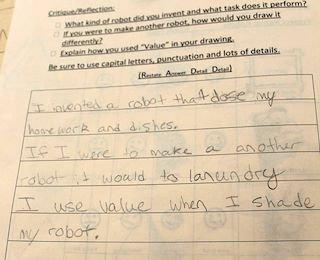 Critique/Reflection:
□ What kind of robot did you invent and what task does it perform?
□ If you were to make another robot, how would you draw it
differently?
□ Explain how you used "Value" in your drawing.
Be sure to use capital letters, punctuation and lots of details.
(Restate Answer Detail Detail)
I invented a robot that dose my
homework and dishes.
If I were to make a another
robot it would to lanundry
I use value when I shade
my robot.